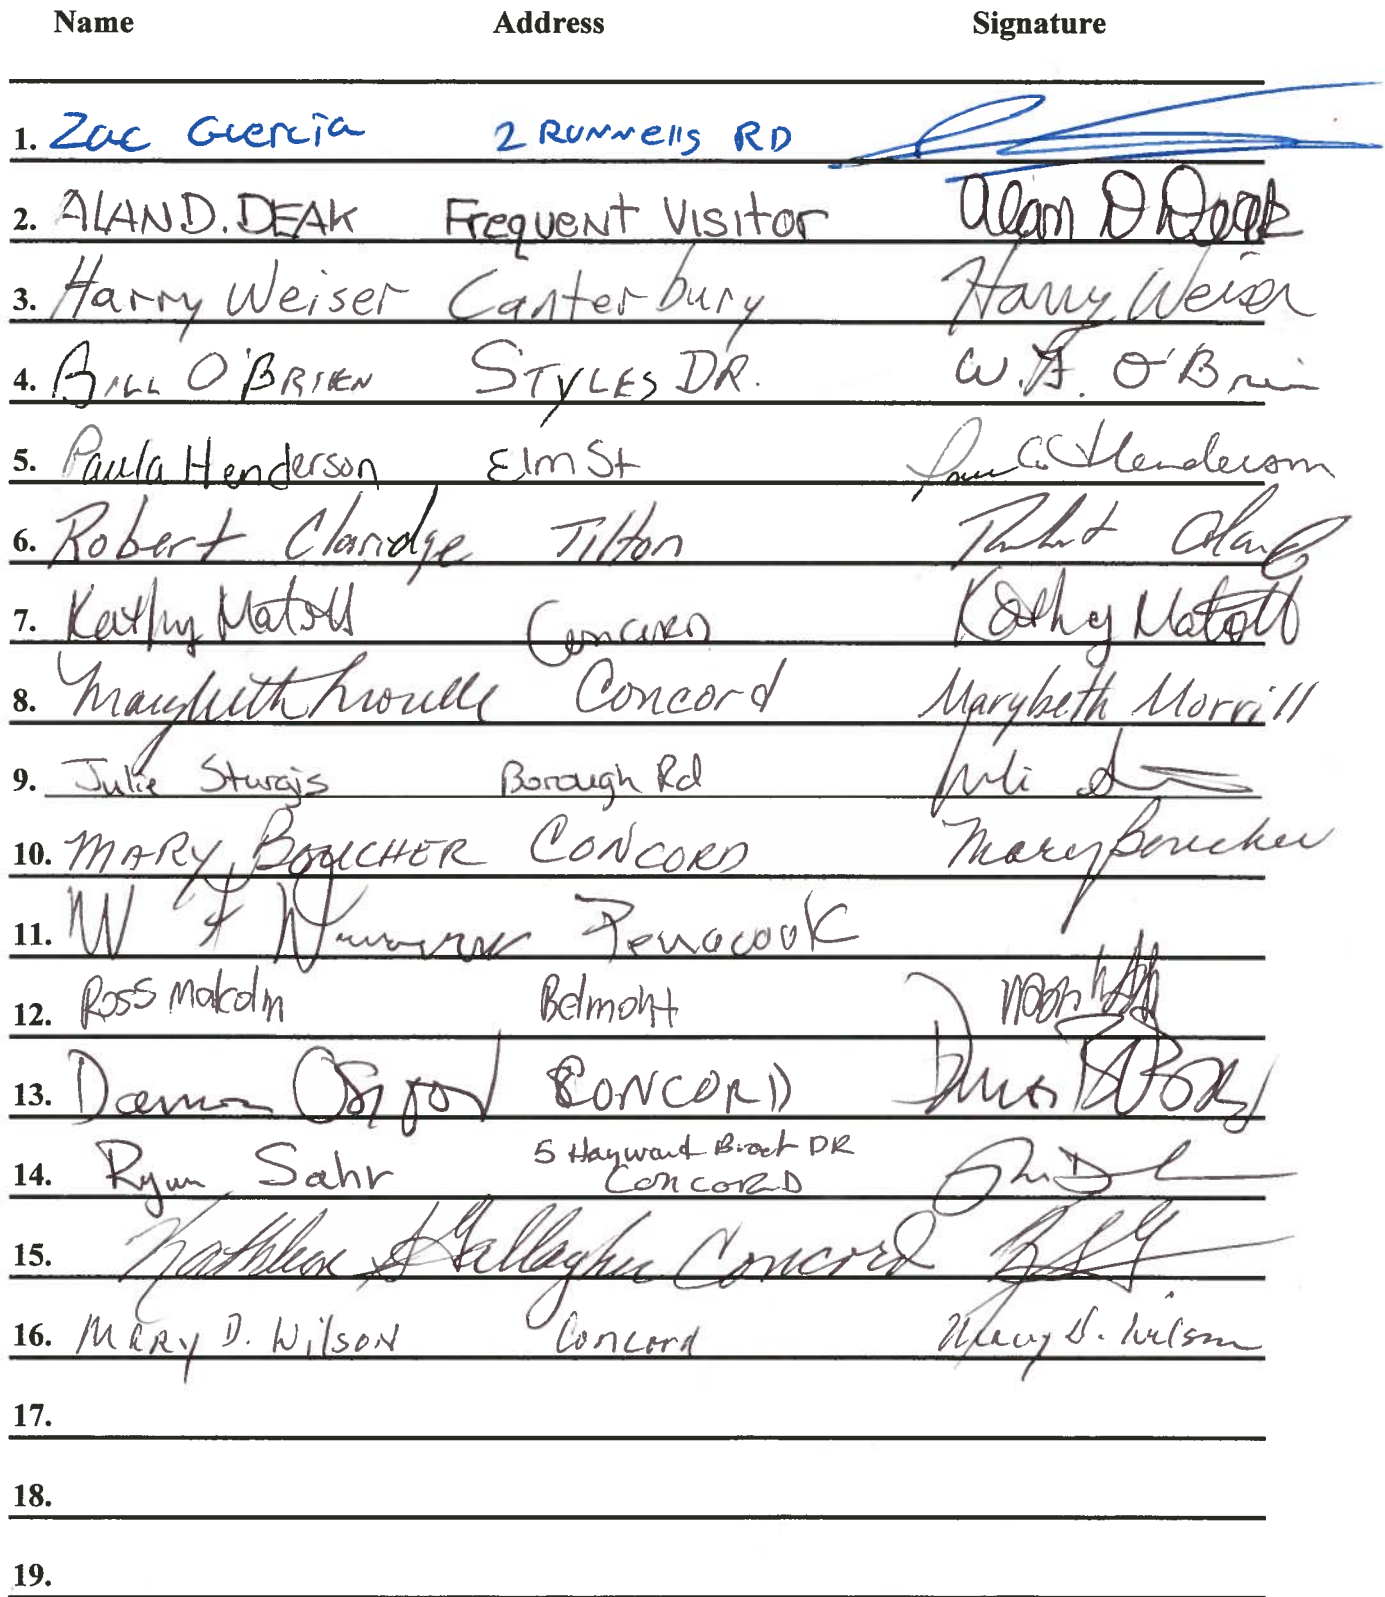 Name Address Signature
1. Zac Guercia 2 Runnells RD
2. ALAN D. DEAK Frequent Visitor Alan D Deak
3. Harry Weiser Canterbury Harry Weiser
4. BILL O'BRIEN STYLES DR. W. F. O'Brien
5. Paula Henderson Elm St Henderson
6. Robert Claridge Tilton
7. Kathy Matott Concord Kathy Matott
8. Marybeth Morrill Concord Marybeth Morrill
9. Julie Sturgis Borough Rd Juli
10. MARY BOUCHER CONCORD Mary Boucher
11. W Penacook
12. Ross Malcolm Belmont
13. Osgood CONCORD
14. Ryan Sahr 5 Hayward Brook DR
CONCORD
15. Kathleen Gallagher Concord
16. MARY D. Wilson Concord Mary D. Wilson
17.
18.
19.